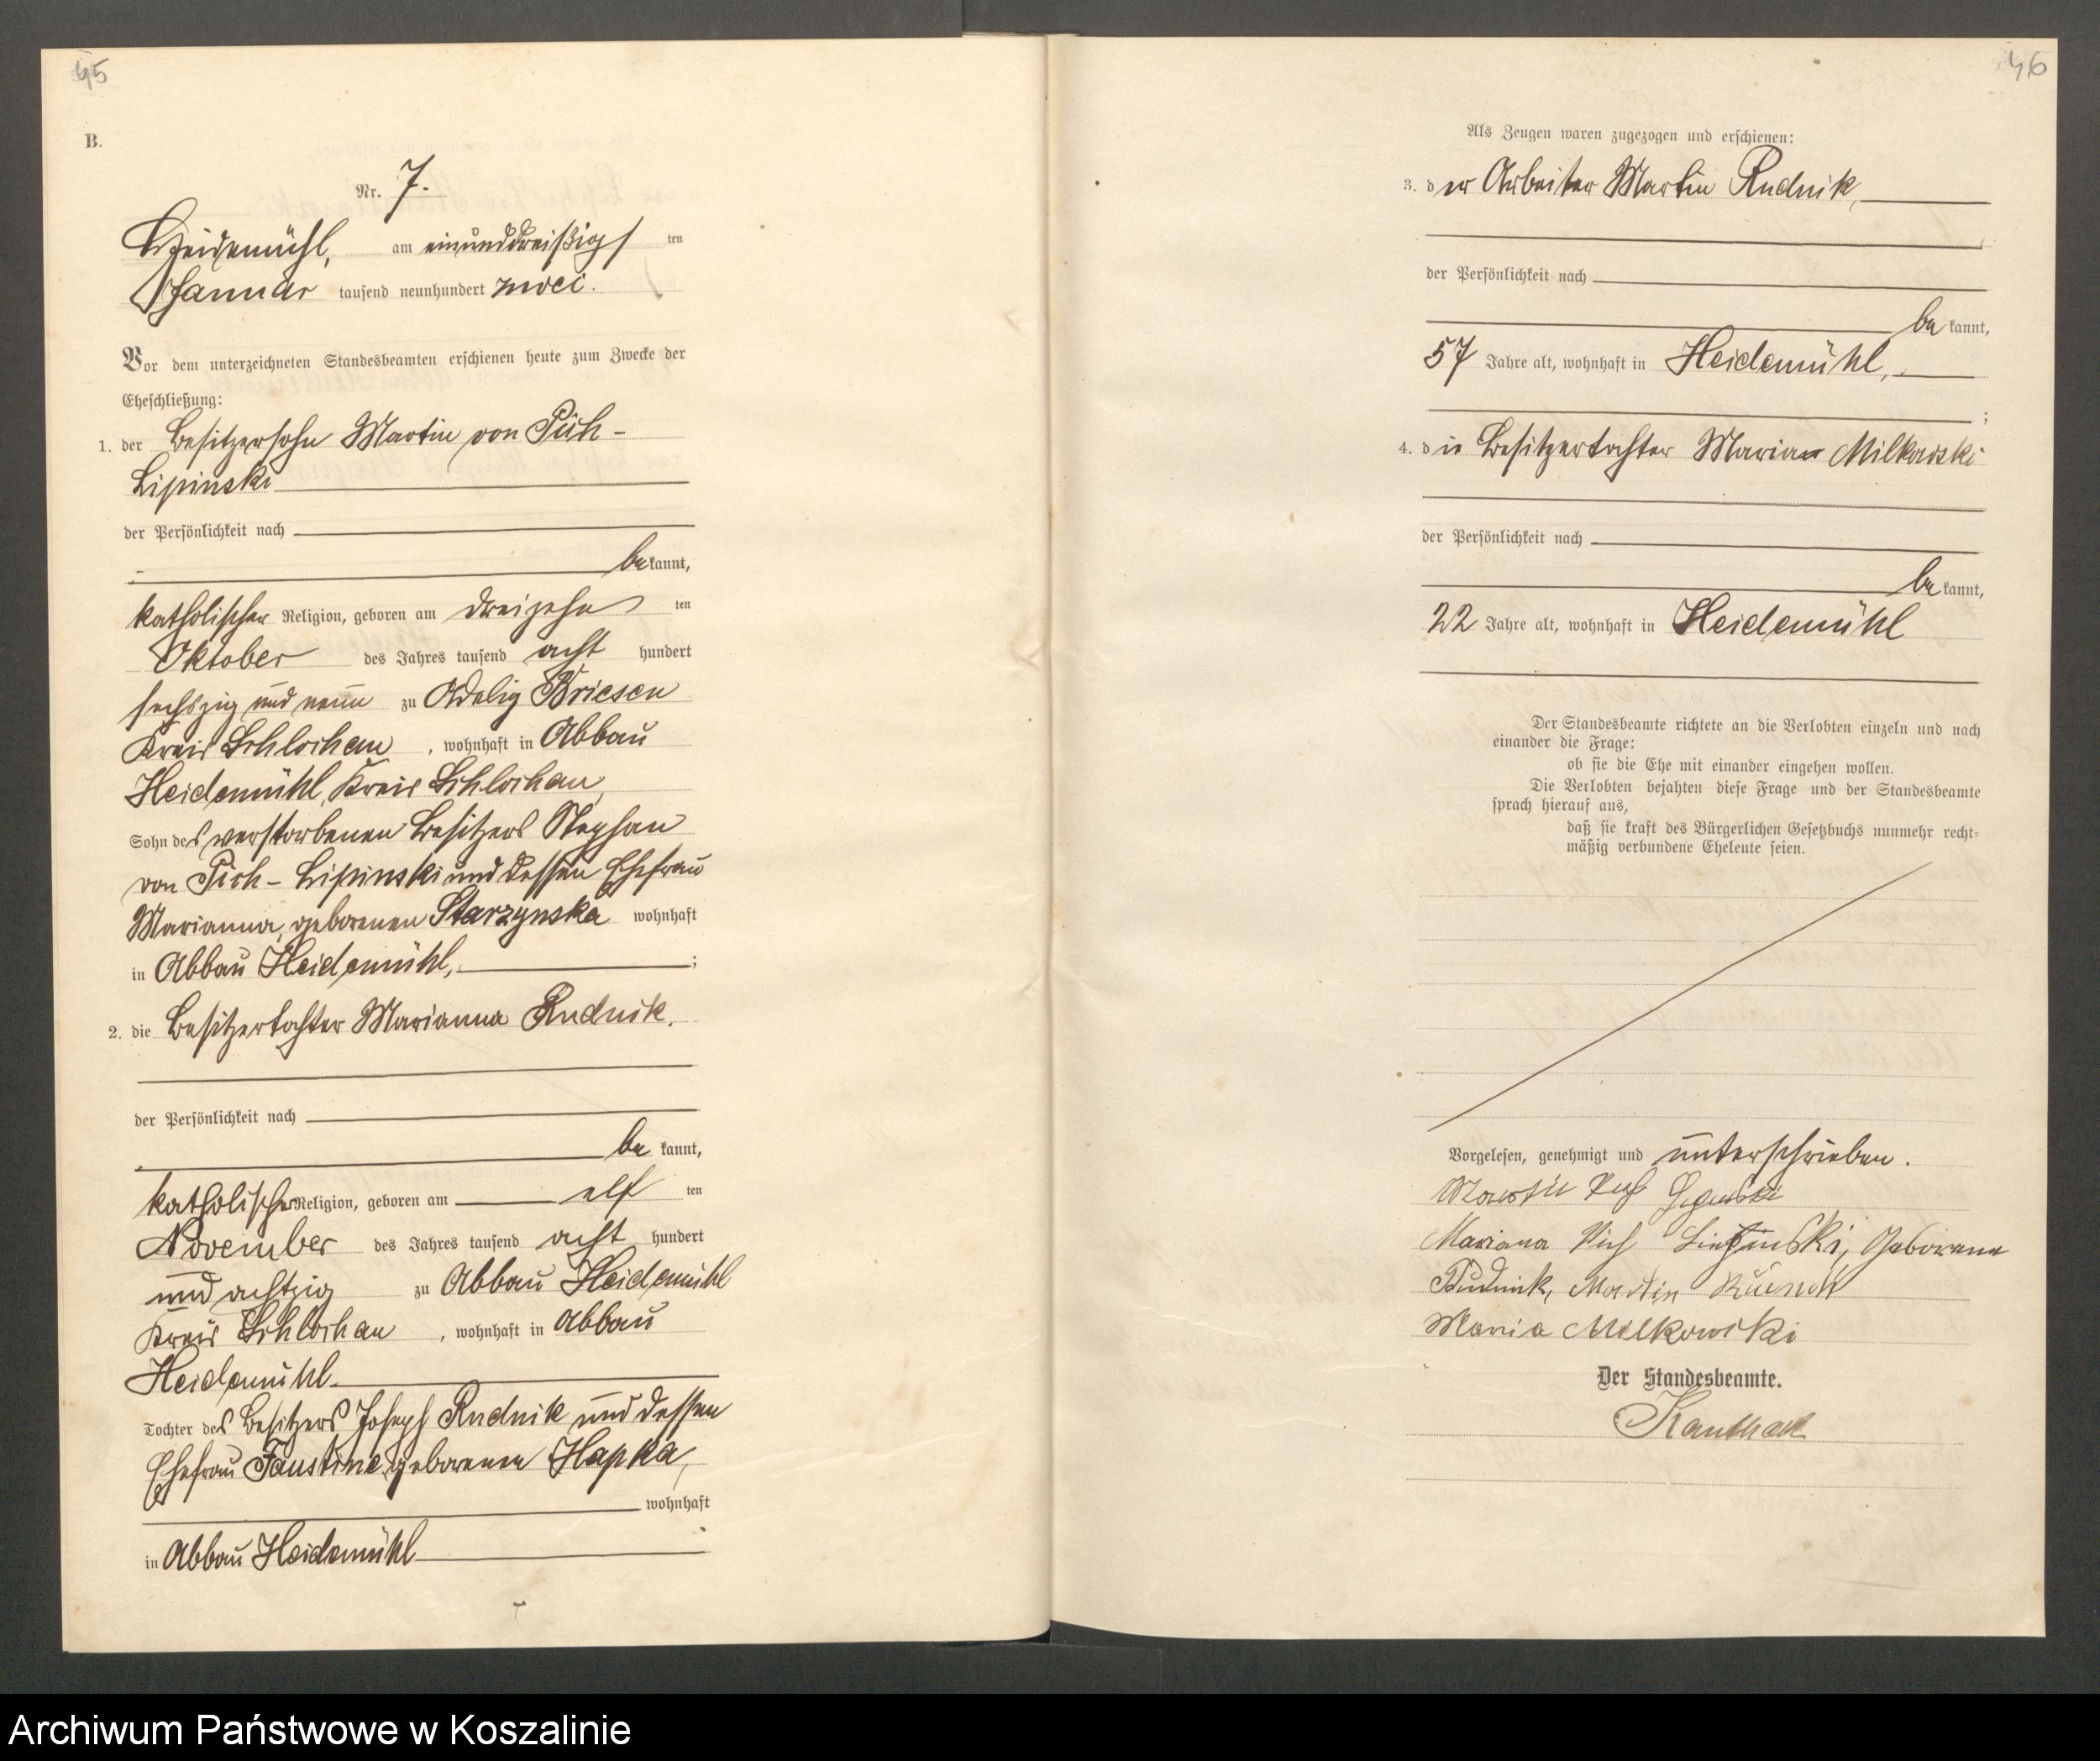 45
B.
Nr. 7.
Heidemühl, am einunddreißigs ten
Januar tausend neunhundert zwei.
Vor dem unterzeichneten Standesbeamten erschienen heute zum Zwecke der
Eheschließung:
1. der Besitzersohn Martin von Pich-
Lipinski
der Persönlichkeit nach
be kannt,
katholischer Religion, geboren am dreizehn ten
Oktober des Jahres tausend acht hundert
sechszig und neun zu Adelig Briesen
Kreis Schlochau, wohnhaft in Abbau
Heidemühl, Kreis Schlochau,
Sohn des verstorbenen Besitzers Stephan
von Pich-Lipinski und dessen Ehefrau
Marianna, geborenen Starzynska wohnhaft
in Abbau Heidemühl, ;
2. die Besitzertochter Marianna Rudnik,
der Persönlichkeit nach
be kannt,
katholischer Religion, geboren am elf ten
November des Jahres tausend acht hundert
und achtzig zu Abbau Heidemühl
Kreis Schlochau, wohnhaft in Abbau
Heidemühl
Tochter des Besitzers Joseph Rudnik und dessen
Ehefrau Faustine, geborenen Hapka,
wohnhaft
in Abbau Heidemühl
46
Als Zeugen waren zugezogen und erschienen:
3. d er Arbeiter Martin Rudnik,
der Persönlichkeit nach
be kannt,
57 Jahre alt, wohnhaft in Heidemühl,
;
4. d ie Besitzertochter Maria Milkowski
der Persönlichkeit nach
be kannt,
22 Jahre alt, wohnhaft in Heidemühl
Der Standesbeamte richtete an die Verlobten einzeln und nach
einander die Frage:
ob sie die Ehe mit einander eingehen wollen.
Die Verlobten bejahten diese Frage und der Standesbeamte
sprach hierauf aus,
daß sie kraft des Bürgerlichen Gesetzbuchs nunmehr recht=
mäßig verbundene Eheleute seien.
Vorgelesen, genehmigt und unterschrieben.
Martin Pich
Mariana Pich Liepinski, Geborene
Rudnik, Martin
Maria Milkowski
Der Standesbeamte.
Archiwum Państwowe w Koszalinie